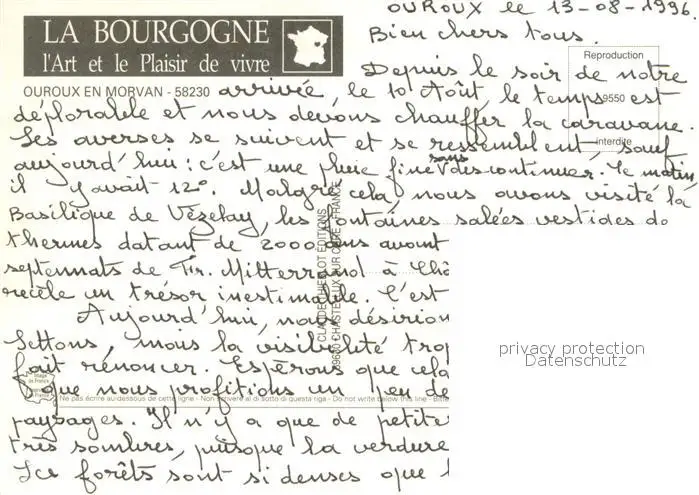 OUROUX le 13-08-1996.
LA BOURGOGNE
l'Art et le Plaisir de vivre
Bien chers tous.
Reproduction
9550
interdite
OUROUX EN MORVAN - 58230
Depuis le soir de notre
arrivée, le 10 Août, le temps est
déplorable et nous devons chauffer la caravane.
Les averses se suivent et se ressemblent, sauf
aujourd'hui : c'est une pluie fine sans discontinuer. Ce matin,
il y avait 12°. Malgré cela, nous avons visité la
Basilique de Vézelay, les fontaines salées vestiges de
thermes datant de 2000 ans avant
septennats de Fr. Mitterrand à Châ
recèle un trésor inestimable. C'est
Aujourd'hui, nous désirion
Settons, mais la visibilité trop
fait renoncer. Espérons que cela
que nous profitions un peu de
paysages. Il n'y a que de petite
très sombres, puisque la verdure
Les forêts sont si denses que l
CLAUDE CHEILLOT EDITIONS
89660 CHASTELLUX SUR CURE FRANCE
Ne pas écrire au-dessous de cette ligne - Non scrivere al di sotto di questa riga - Do not write below this line - Bitte
privacy protection
Datenschutz